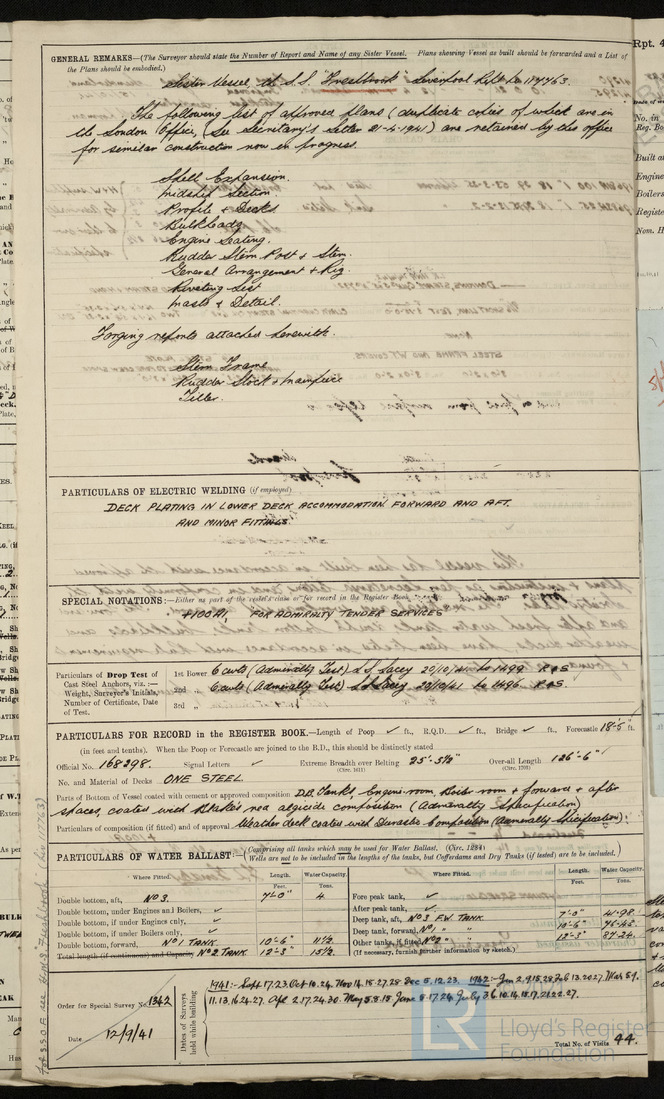 GENERAL REMARKS—(The Surveyor should state the Number of Report and Name of any Sister Vessel. Plans showing Vessel as built should be forwarded and a List of
the Plans should be embodied.)
Sister Vessel, the S.S. "Freshbrook" Liverpool Rpt No 119763.
The following list of approved plans (duplicate copies of which are in
the London Office, (See Secretary's Letter 21-4-1941) are retained by this office
for similar construction now in progress.
Shell Expansion.
Midship Section.
Profile & Decks.
Bulkheads.
Engine Seating.
Rudder Stern Post & Stem.
General Arrangement & Rig.
Riveting List
Masts & Detail.
Forging reports attached herewith.
Stern Frame
Rudder Stock & Mainpiece
Tiller.
PARTICULARS OF ELECTRIC WELDING (if employed)
DECK PLATING IN LOWER DECK ACCOMMODATION FORWARD AND AFT.
AND MINOR FITTINGS
SPECIAL NOTATIONS:—Either as part of the vessel's class or for record in the Register Book
+100A1 FOR ADMIRALTY TENDER SERVICES
Particulars of Drop Test of
Cast Steel Anchors, viz.:—
Weight, Surveyor's Initials,
Number of Certificate, Date
of Test.
1st Bower 6 cwts (Admiralty Test) L.S. Lacey 20/10/41 No 1499 R&S
2nd " 6 cwts (Admiralty Test) L.S. Lacey 20/10/41 No 1496 R&S.
3rd "
PARTICULARS FOR RECORD in the REGISTER BOOK.—Length of Poop ✓ ft., R.Q.D. ✓ ft., Bridge ✓ ft., Forecastle 18'-5" ft.
(in feet and tenths). When the Poop or Forecastle are joined to the B.D., this should be distinctly stated
Official No. 168298. Signal Letters ✓ Extreme Breadth over Belting 25'-5½" Over-all Length 126'-6"
(Circ. 1611) (Circ. 1703)
No. and Material of Decks ONE STEEL
Parts of Bottom of Vessel coated with cement or approved composition D.B. Tanks Engine room, Boiler room & forward & after
spaces, coated with red algicide composition (Admiralty Specification)
Particulars of composition (if fitted) and of approval Weather deck coated with Durastic Composition (Admiralty Specification).
PARTICULARS OF WATER BALLAST:— (Comprising all tanks which may be used for Water Ballast. (Circ. 1284)
Wells are not to be included in the lengths of the tanks, but Cofferdams and Dry Tanks (if tested) are to be included.)
Where Fitted. Length. Water Capacity. Where Fitted. Length. Water Capacity.
Feet. Tons. Feet. Tons.
Double bottom, aft, No 3. 7'-0" 4
Double bottom, under Engines and Boilers, ✓
Double bottom, if under Engines only, ✓
Double bottom, if under Boilers only, ✓
Double bottom, forward, No 1 TANK 10'-6" 11½
Total length (if continuous) and Capacity No 2 TANK 12'-3" 15½
Fore peak tank, ✓
After peak tank, ✓
Deep tank, aft, No 3 F.W. TANK 7'-0" 41.98
Deep tank, forward, No 1 " " 10'-6" 76.45
Other tanks, if fitted, No 2 " 12'-3" 87.24
(If necessary, furnish further information by sketch.)
Order for Special Survey No. 1342
Date 12/9/41
Dates of Surveys
held while building
1941:- Sept 17.23. Oct 10.24. Nov 14.15.27.28. Dec 5.12.23. 1942- Jan 2.9.15.28. Feb 13.20.27. Mar 5.9.
11.13.16.24.27. Apl 2.17.24.30. May 5.8.15 June 5.17.24. July 3.6.10.14.15.17.21.22.27.
Total No. of Visits 44.
LR
Lloyd's Register
Foundation
Rpt. 4
No. in
Reg. Bo
Built a
Engine
Boilers
Registe
Nom. H